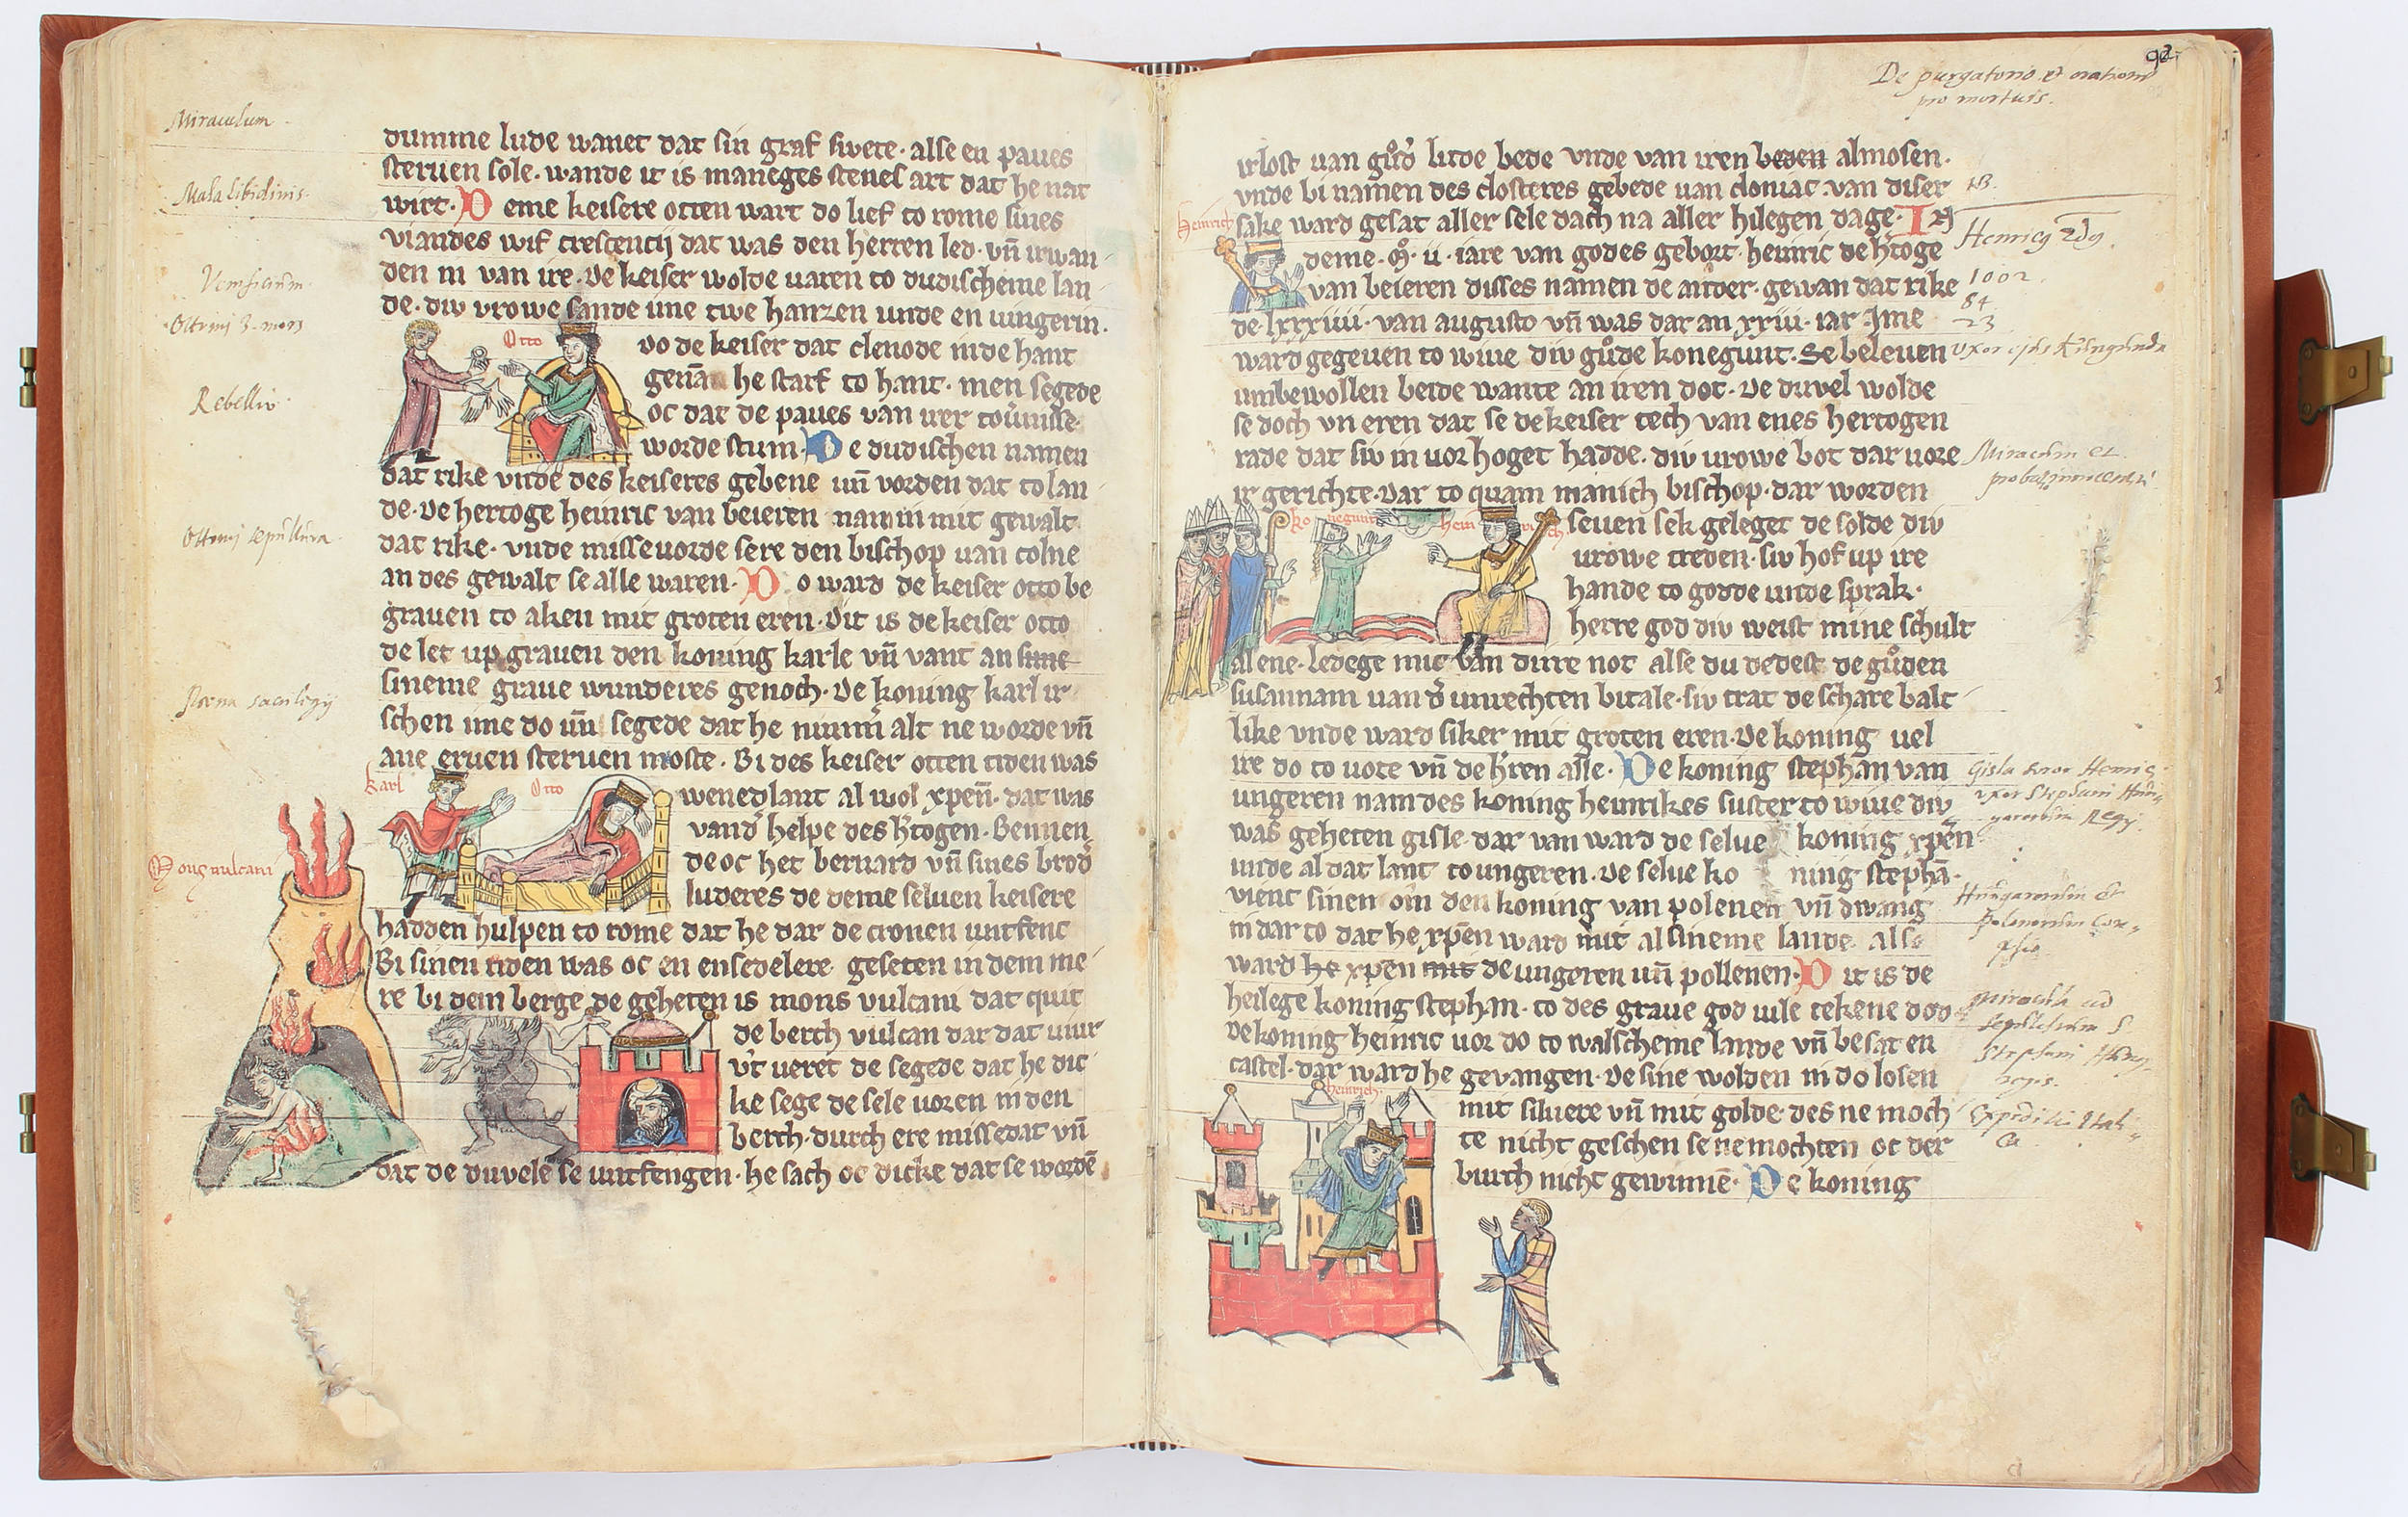 Miraculum
Mala libidinis
Ottonis 3. mors
Rebellio
Ottonis sepultura
Poena sacrilegij
dumme lude wanet dat sin graf swete· alse en paues
steruen sole· wande it is maneges stenes art dat he nat
wirt· Deme keisere otten wart do lief to rome sines
viandes wif crescentij dat was den herren led· vn̄ irwan
den in van ire· De keiser wolde uaren to dudischeme lan
de· div vrowe sande ime twe hanzen unde en uingerin·
Otto
vo de keiser dat clenode in de hant
genā he starf to hant· men segede
oc dat de paues van irer touernisse
worde stum· De dudischen namen
dat rike vnde des keiseres gebene uñ vorden dat to lan
de· De hertoge heinric van beieren nam in mit gewalt
dat rike· vnde misseuorde sere den bischop uan colne
an des gewalt se alle waren· Do ward de keiser otto be
grauen to aken mit groten eren· Dit is de keiser otto
de let up grauen den koning karle vñ vant an sime
sineme graue wunderes genoch· De koning karl ir
schen ime do uñ segede dat he nummer alt ne worde vñ
ane eruen steruen moste· Bi des keiser otten tiden was
karl
Otto
wenedlant al wol xpen̄· dat was
van der helpe des h'togen· Bennen
de oc het bernard vñ sines brod'
luderes de deme seluen keisere
Mons vulcani
hadden hulpen to rome dat he dar de cronen untfenc
Bi sinen tiden was oc en ensedelere geseten in dem me
re bi dem berge de geheten is mons vulcani dat quit
de berch vulcan dar dat uiur
vt ueret de segede dat he dic
ke sege de sele uoren in den
berch· durch ere missedat vñ
dat de duvele se untfengen· he sach oc dicke dat se wordē
92
De purgatorio et oratione
pro mortuis.
irlost uan guder litde bede vnde van iren beden almosen·
vnde bi namen des closteres gebede uan cloniac· van diser
sake ward gesat aller sele dach na aller hilegen dage· In
Heinrich
deme· M· ii· iare van godes gebort· heinric de h'toge
van beieren disses namen de ander· gewan dat rike
de lxxxiiii· van augusto vñ was dar an xxiii· iar· Ime
ward gegeuen to wiue div gude konegunt· Se beleuen
umbewollen beide wante an iren dot· De duvel wolde
se doch vn eren dat se de keiser tech van enes hertogen
rade dat siv in uor hoget hadde· div urowe bot dar uore
ir gerichte· Dar to quam manich bischop· dar worden
Henricus 2dus.
1002.
84
23
uxor ejus Kungunda
Miraculum et
ko negunt
hein rich
seuen sek geleget de solde div
urowe treden· siv hof up ire
hande to godde unde sprak·
herre god div weist mine schult
al ene· ledege mic van dirre not alse du dedest de guden
susannam uan d' unrechten bitale· siv trat de schare balt
like vnde ward siker mit groten eren· De koning uel
ire do to uote vñ de h'ren alle· De koning stephan van
ungeren nam des koning heinrikes suster to wiue div
was geheten gisle· dar van ward de selue koning xpen
unde al dat lant to ungeren· De selue ko ning stephā·
vient sinen om den koning van polenen vñ dwang
in dar to dat he xpen ward mit al sineme lande alse
ward he xpen mit de ungeren uñ pollenen· Dit is de
heilege koning stephan· to des graue god vile tekene dod·
De koning heinric uor do to walscheme lande vñ besat en
castel· dar ward he gevangen· De sine wolden in do losen
Heinrich
mit siluere vñ mit golde· des ne moch
te nicht geschen se ne mochten oc der
burch nicht gewinnē· De koning
Gisla soror Henrici
uxor Stephani
Regis
Hungarorum et
Polonorum
miracula ad
sepulchrum S.
Stephani
regis.
Expeditio Itali
ca